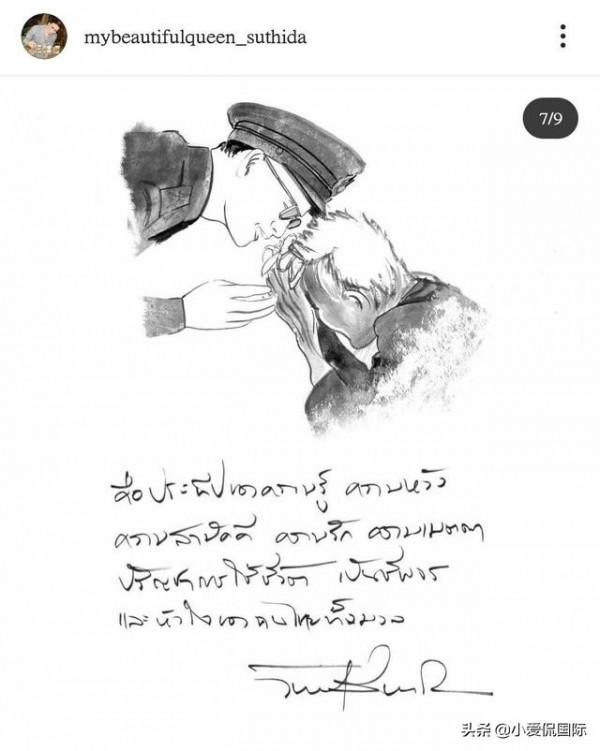 mybeautifulqueen_suthida
7/9
คือประทีปแห่งความรู้ ความหวัง
ความสามัคคี ความรัก ความเมตตา
ปรัชญาการใช้ชีวิต เป็นชีพจร
และหัวใจของคนไทยทั้งมวล
头条 @小爱侃国际